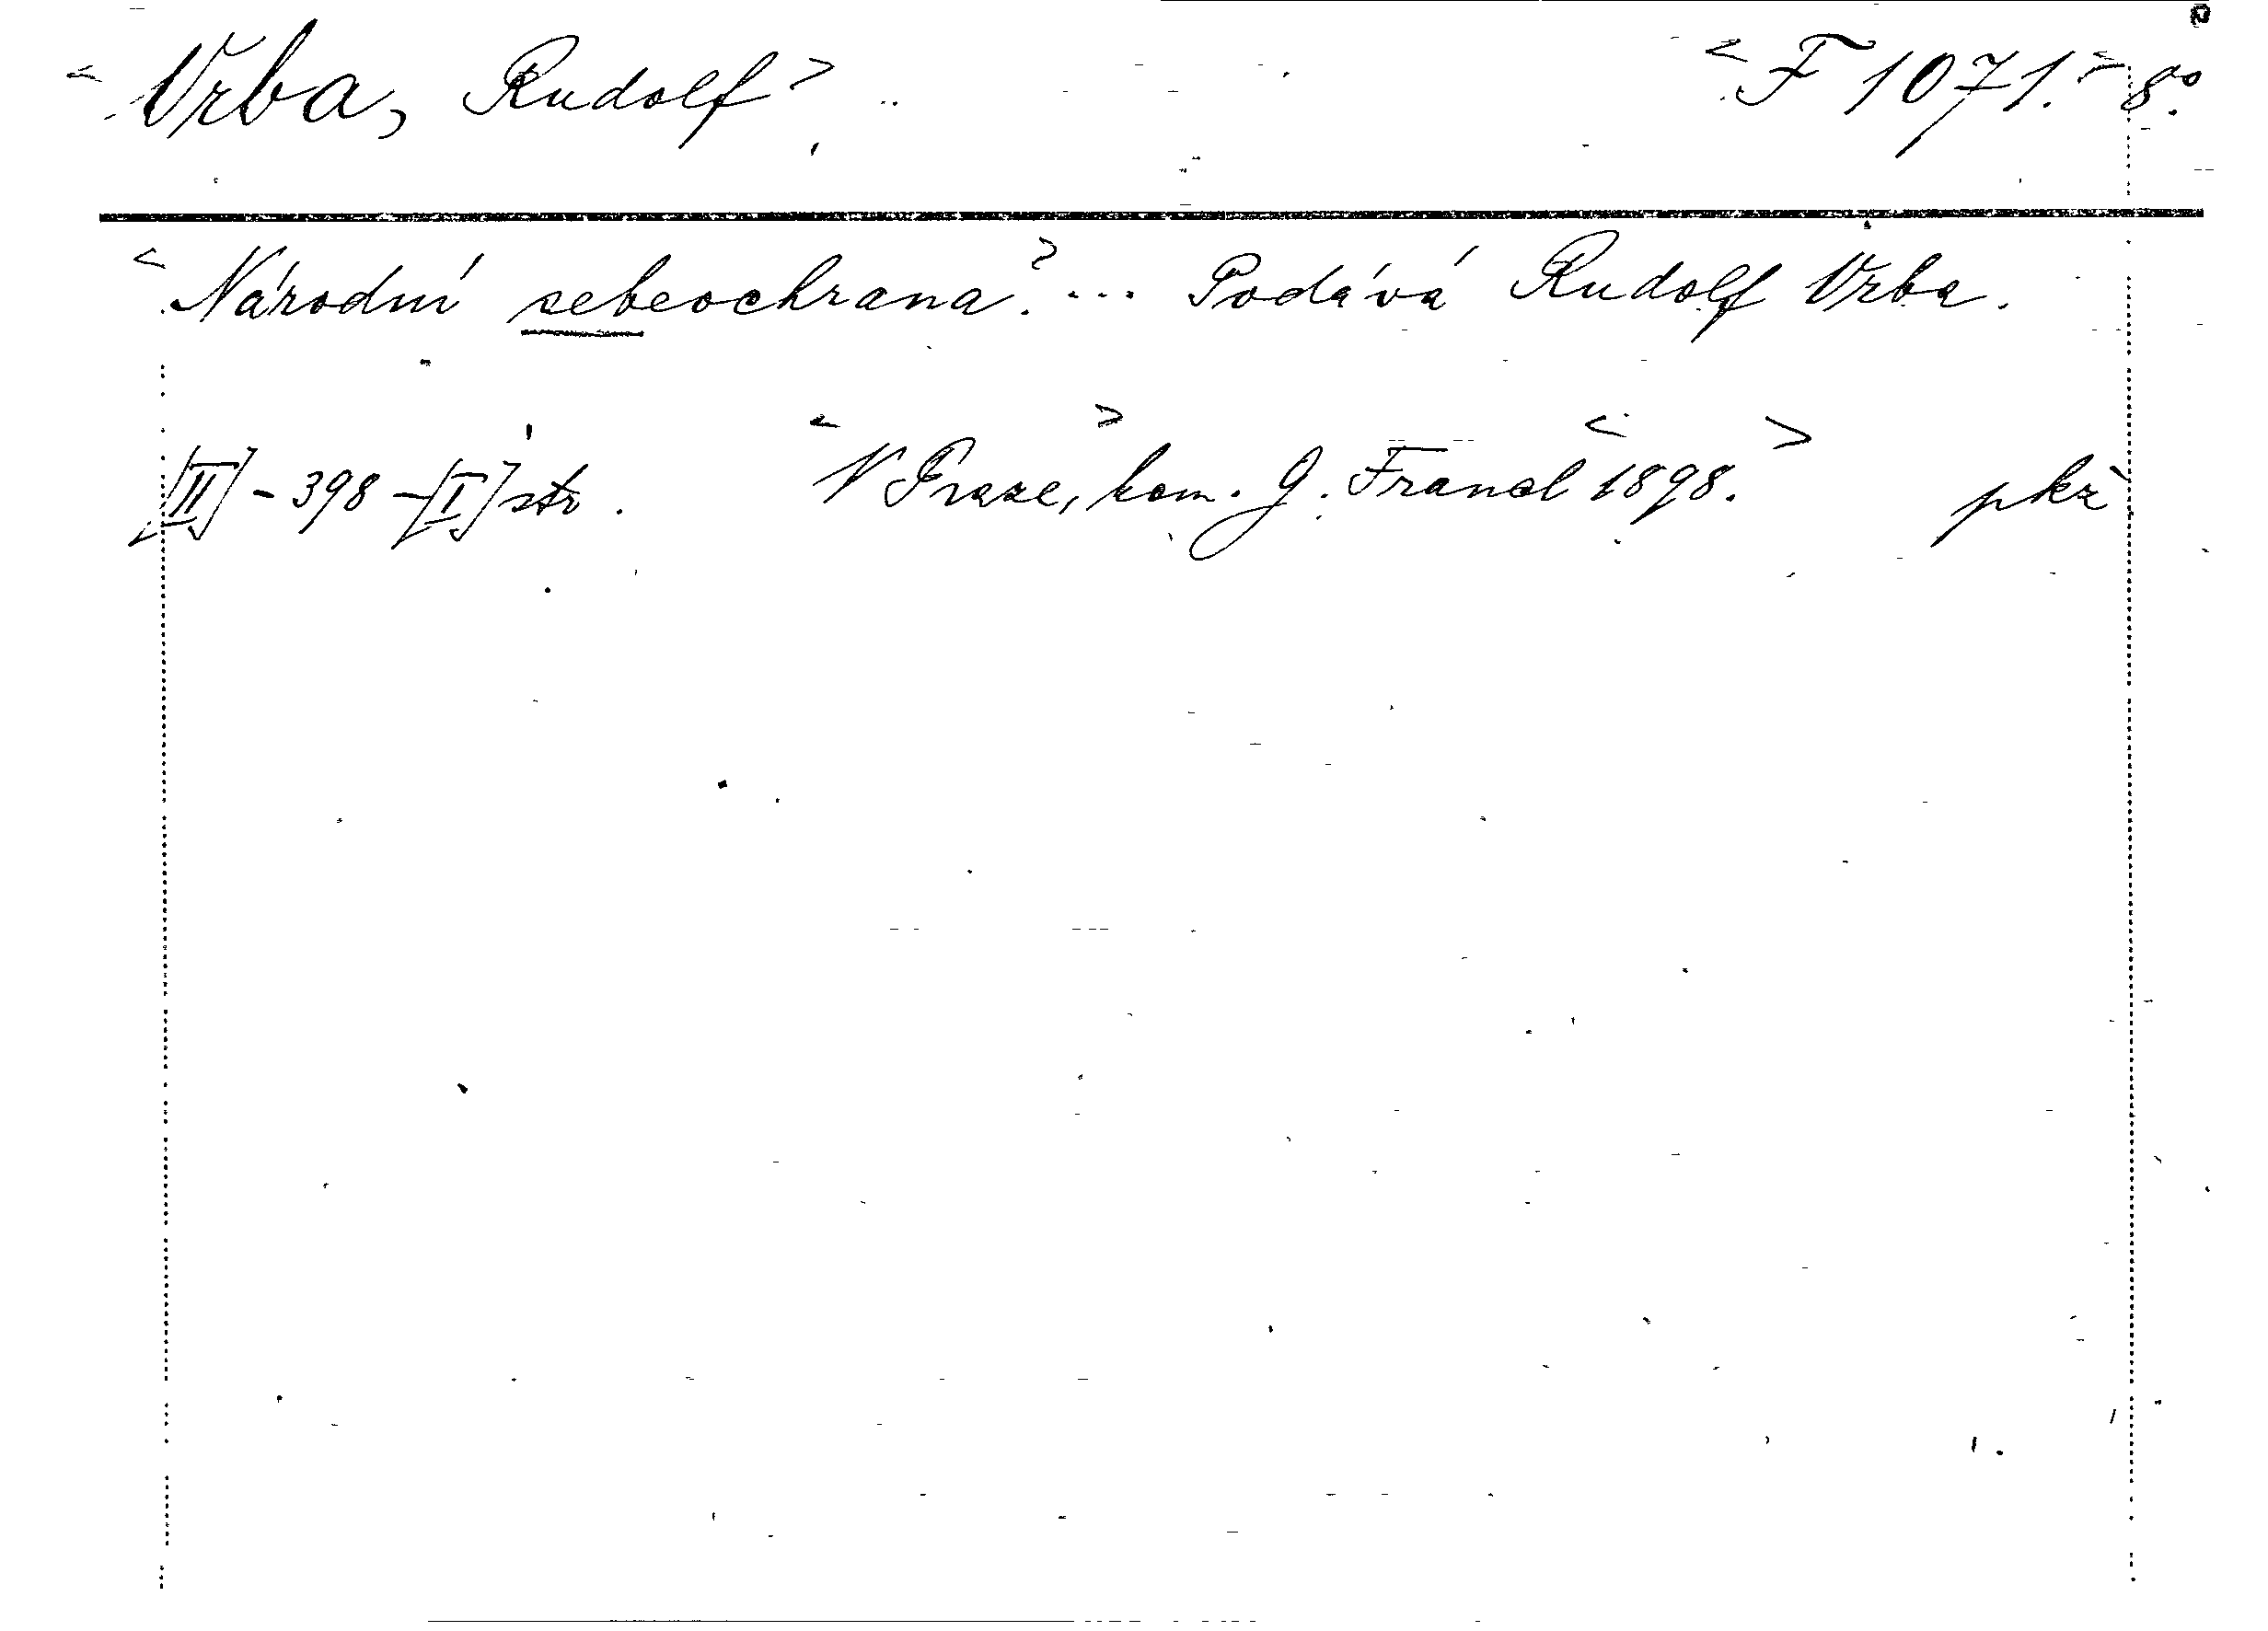 <Vrba, Rudolf> <F 1071.> 8°.
<Národní sebeochrana.> ... Podává Rudolf Vrba.
[II] - 398 - [I] str. <V Praze,> kom. G. Francl <1898.> pkř